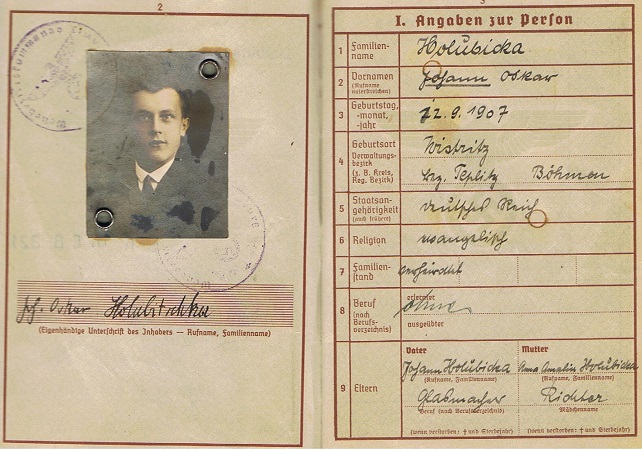 2
Joh. Oskar Holubitschka
(Eigenhändige Unterschrift des Inhabers — Rufname, Familienname)
3
I. Angaben zur Person
1 Familien-
name
Holubicka
2 Vornamen
(Rufname
unterstreichen)
Johann Oskar
3 Geburtstag,
-monat,
-jahr
12.9.1907
4 Geburtsort
Verwaltungs-
bezirk
(z. B. Kreis,
Reg. Bezirk)
Wistritz
bez. Teplitz Böhmen
5 Staatsan-
gehörigkeit
(auch frühere)
deutsches Reich
6 Religion
evangelisch
7 Familien-
stand
verheiratet
8 Beruf
(nach
Berufs-
verzeichnis)
erlernter
ohne
ausgeübter
9 Eltern
Vater
Johann Holubicka
(Rufname, Familienname)
Glasmacher
Beruf (nach Berufsverzeichnis)
(wenn verstorben: † und Sterbejahr)
Mutter
Anna Amalia Holubicka
(Rufname, Familienname)
Richter
Mädchenname
(wenn verstorben: † und Sterbejahr)